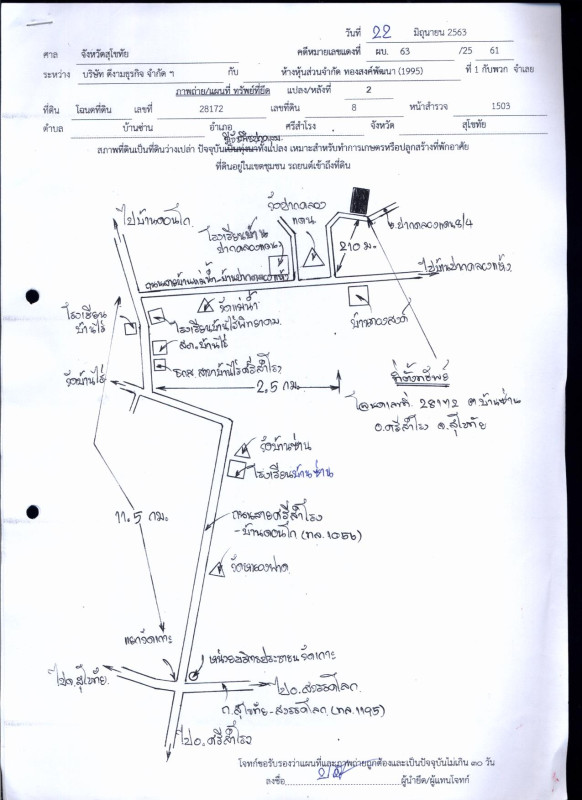 วันที่ 22 มิถุนายน 2563
ศาล จังหวัดสุโขทัย คดีหมายเลขแดงที่ ผบ. 63 /25 61
ระหว่าง บริษัท ดีงามธุรกิจ จำกัด ฯ กับ ห้างหุ้นส่วนจำกัด ทองสงค์พัฒนา (1995) ที่ 1 กับพวก จำเลย
ภาพถ่าย/แผนที่ ทรัพย์ที่ยึด แปลง/หลังที่ 2
ที่ดิน โฉนดที่ดิน เลขที่ 28172 เลขที่ดิน 8 หน้าสำรวจ 1503
ตำบล บ้านซ่าน อำเภอ ศรีสำโรง จังหวัด สุโขทัย
สภาพที่ดินเป็นที่ดินว่างเปล่า ปัจจุบันเป็นทุ่งนาทั้งแปลง เหมาะสำหรับทำการเกษตรหรือปลูกสร้างที่พักอาศัย
ที่ดินอยู่ในเขตชุมชน รถยนต์เข้าถึงที่ดิน
วัดปากคลองแดน
ไปบ้านดอนโก
โรงเรียนบ้านปากคลองแดน
ซ.ปากคลองแดน 8/4
210 ม.
ไปบ้านปากคลองแห้ง
ถนนสายบ้านแม่น้ำ-บ้านปากคลองแห้ง
วัดแม่น้ำ
โรงเรียนบ้านไร่
โรงเรียนบ้านไร่พิทยาคม
สถ.บ้านไร่
ธกส สาขาบ้านไร่ศรีสำโรง
วัดบ้านไร่
2.5 กม.
ที่ตั้งทรัพย์
โฉนดเลขที่ 28172 ต.บ้านซ่าน
อ.ศรีสำโรง จ.สุโขทัย
วัดบ้านซ่าน
โรงเรียนบ้านซ่าน
11.5 กม.
ถนนสายศรีสำโรง
-บ้านดอนโก (ทล.1056)
วัดหนองฝาด
แยกวัดเกาะ
หน่วยบริการประชาชน วัดเกาะ
ไปจ.สุโขทัย
ไปอ.สวรรคโลก
ถ.สุโขทัย-สวรรคโลก (ทล.1195)
ไปอ.ศรีสำโรง
โจทก์ขอรับรองว่าแผนที่และภาพถ่ายถูกต้องและเป็นปัจจุบันไม่เกิน ๓๐ วัน
ลงชื่อ ผู้นำยึด/ผู้แทนโจทก์